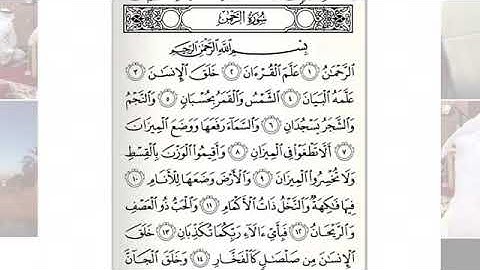 سُورَةُ الرَّحْمٰن
بِسْمِ اللَّهِ الرَّحْمَٰنِ الرَّحِيمِ
الرَّحْمَٰنُ ١ عَلَّمَ الْقُرْءَانَ ٢ خَلَقَ الْإِنسَانَ ٣
عَلَّمَهُ الْبَيَانَ ٤ الشَّمْسُ وَالْقَمَرُ بِحُسْبَانٍ ٥ وَالنَّجْمُ
وَالشَّجَرُ يَسْجُدَانِ ٦ وَالسَّمَاءَ رَفَعَهَا وَوَضَعَ الْمِيزَانَ
٧ أَلَّا تَطْغَوْا فِي الْمِيزَانِ ٨ وَأَقِيمُوا الْوَزْنَ بِالْقِسْطِ
وَلَا تُخْسِرُوا الْمِيزَانَ ٩ وَالْأَرْضَ وَضَعَهَا لِلْأَنَامِ ١٠
فِيهَا فَاكِهَةٌ وَالنَّخْلُ ذَاتُ الْأَكْمَامِ ١١ وَالْحَبُّ ذُو الْعَصْفِ
وَالرَّيْحَانُ ١٢ فَبِأَيِّ ءَالَاءِ رَبِّكُمَا تُكَذِّبَانِ ١٣ خَلَقَ
الْإِنسَانَ مِن صَلْصَالٍ كَالْفَخَّارِ ١٤ وَخَلَقَ الْجَانَّ